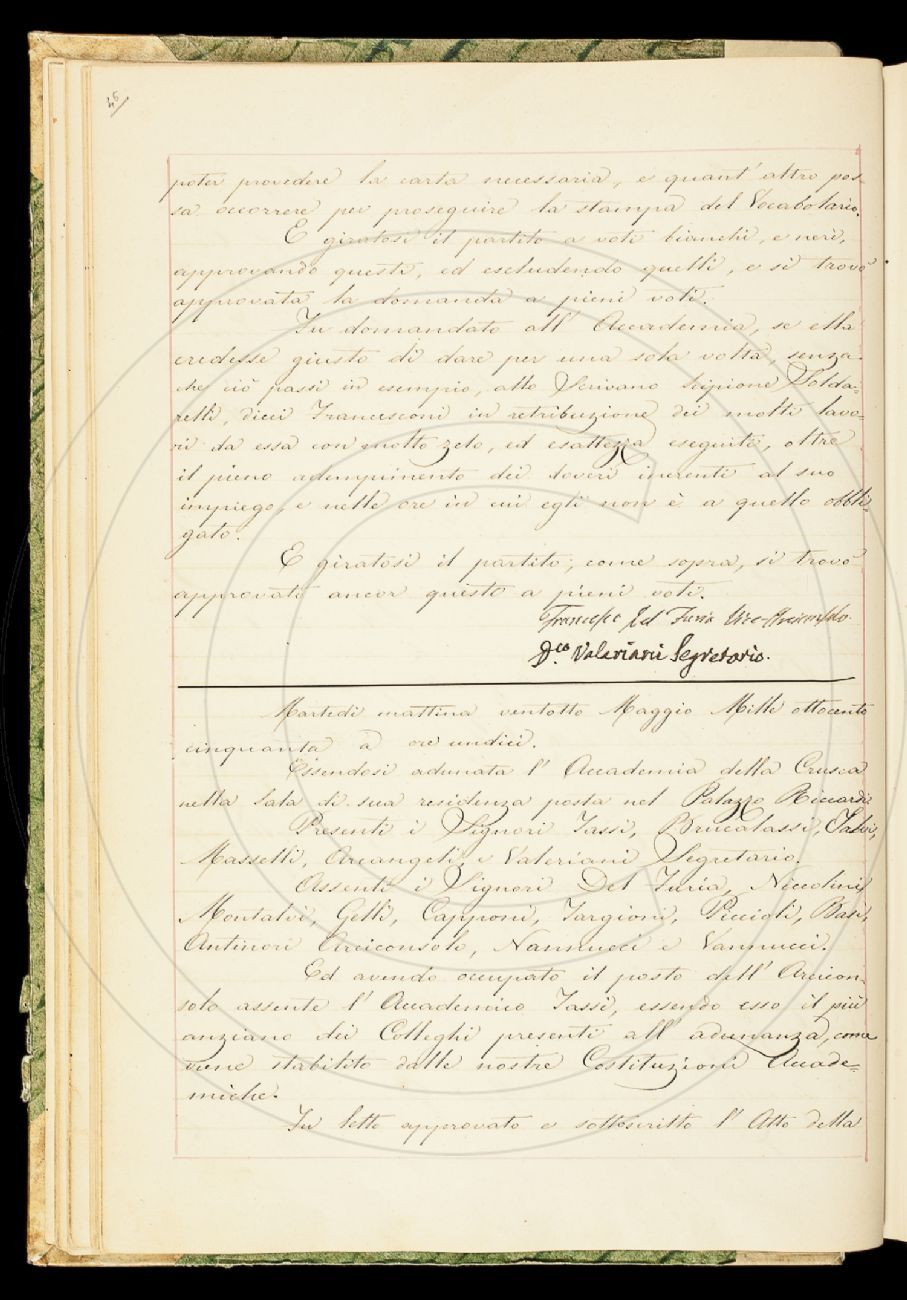 46/
poter provedere la carta necessaria, e quant' altro pos-
sa occorrere per proseguire la stampa del Vocabolario.
E giratosi il partito a voti bianchi, e neri,
approvando questi, ed escludendo quelli, e si trovò
approvata la domanda a pieni voti.
Fu domandato all' Accademia, se ella
credesse giusto di dare per una sola volta, senza
che ciò passi in esempio, allo Scrivano Scipione Solda-
relli, dieci Francesconi in retribuzione dei molti lavo-
ri da esso con molto zelo, ed esattezza eseguiti, oltre
il pieno adempimento dei doveri inerenti al suo
impiego, e nelle ore in cui egli non è a quello obbli-
gato.
E giratosi il partito, come sopra, si trovò
approvato ancor questo a pieni voti.
Francesco Del Furia Vice-Arciconsolo
Dco. Valeriani Segretario.
Martedì mattina ventotto Maggio Mille ottocento
cinquanta a ore undici.
Essendosi adunata l' Accademia della Crusca
nella Sala di sua residenza posta nel Palazzo Riccardi
Presenti i Signori Tassi, Brucalassi, Salvi,
Masselli, Arcangeli, e Valeriani Segretario.
Assenti i Signori Del Furia, Niccolini
Montalvi, Gelli, Capponi, Targioni, Puccioli, Basi,
Antinori Arciconsolo, Nannucci e Vannucci.
Ed avendo occupato il posto dell' Arcicon-
solo assente l' Accademico Tassi, essendo esso il più
anziano dei Colleghi presenti all' adunanza, come
viene stabilito dalle nostre Costituzioni Accade-
miche.
Fu letto approvato e sottoscritto l' Atto della